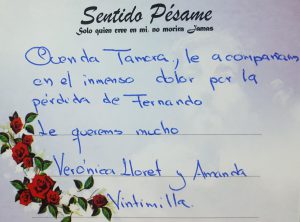 Sentido Pésame
Solo quien cree en mi, no morira Jamas
Querida Tamara, le acompañam
en el inmenso dolor por la
pérdida de Fernando
Le queremos mucho
Verónica Lloret y Amanda
Vintimilla.